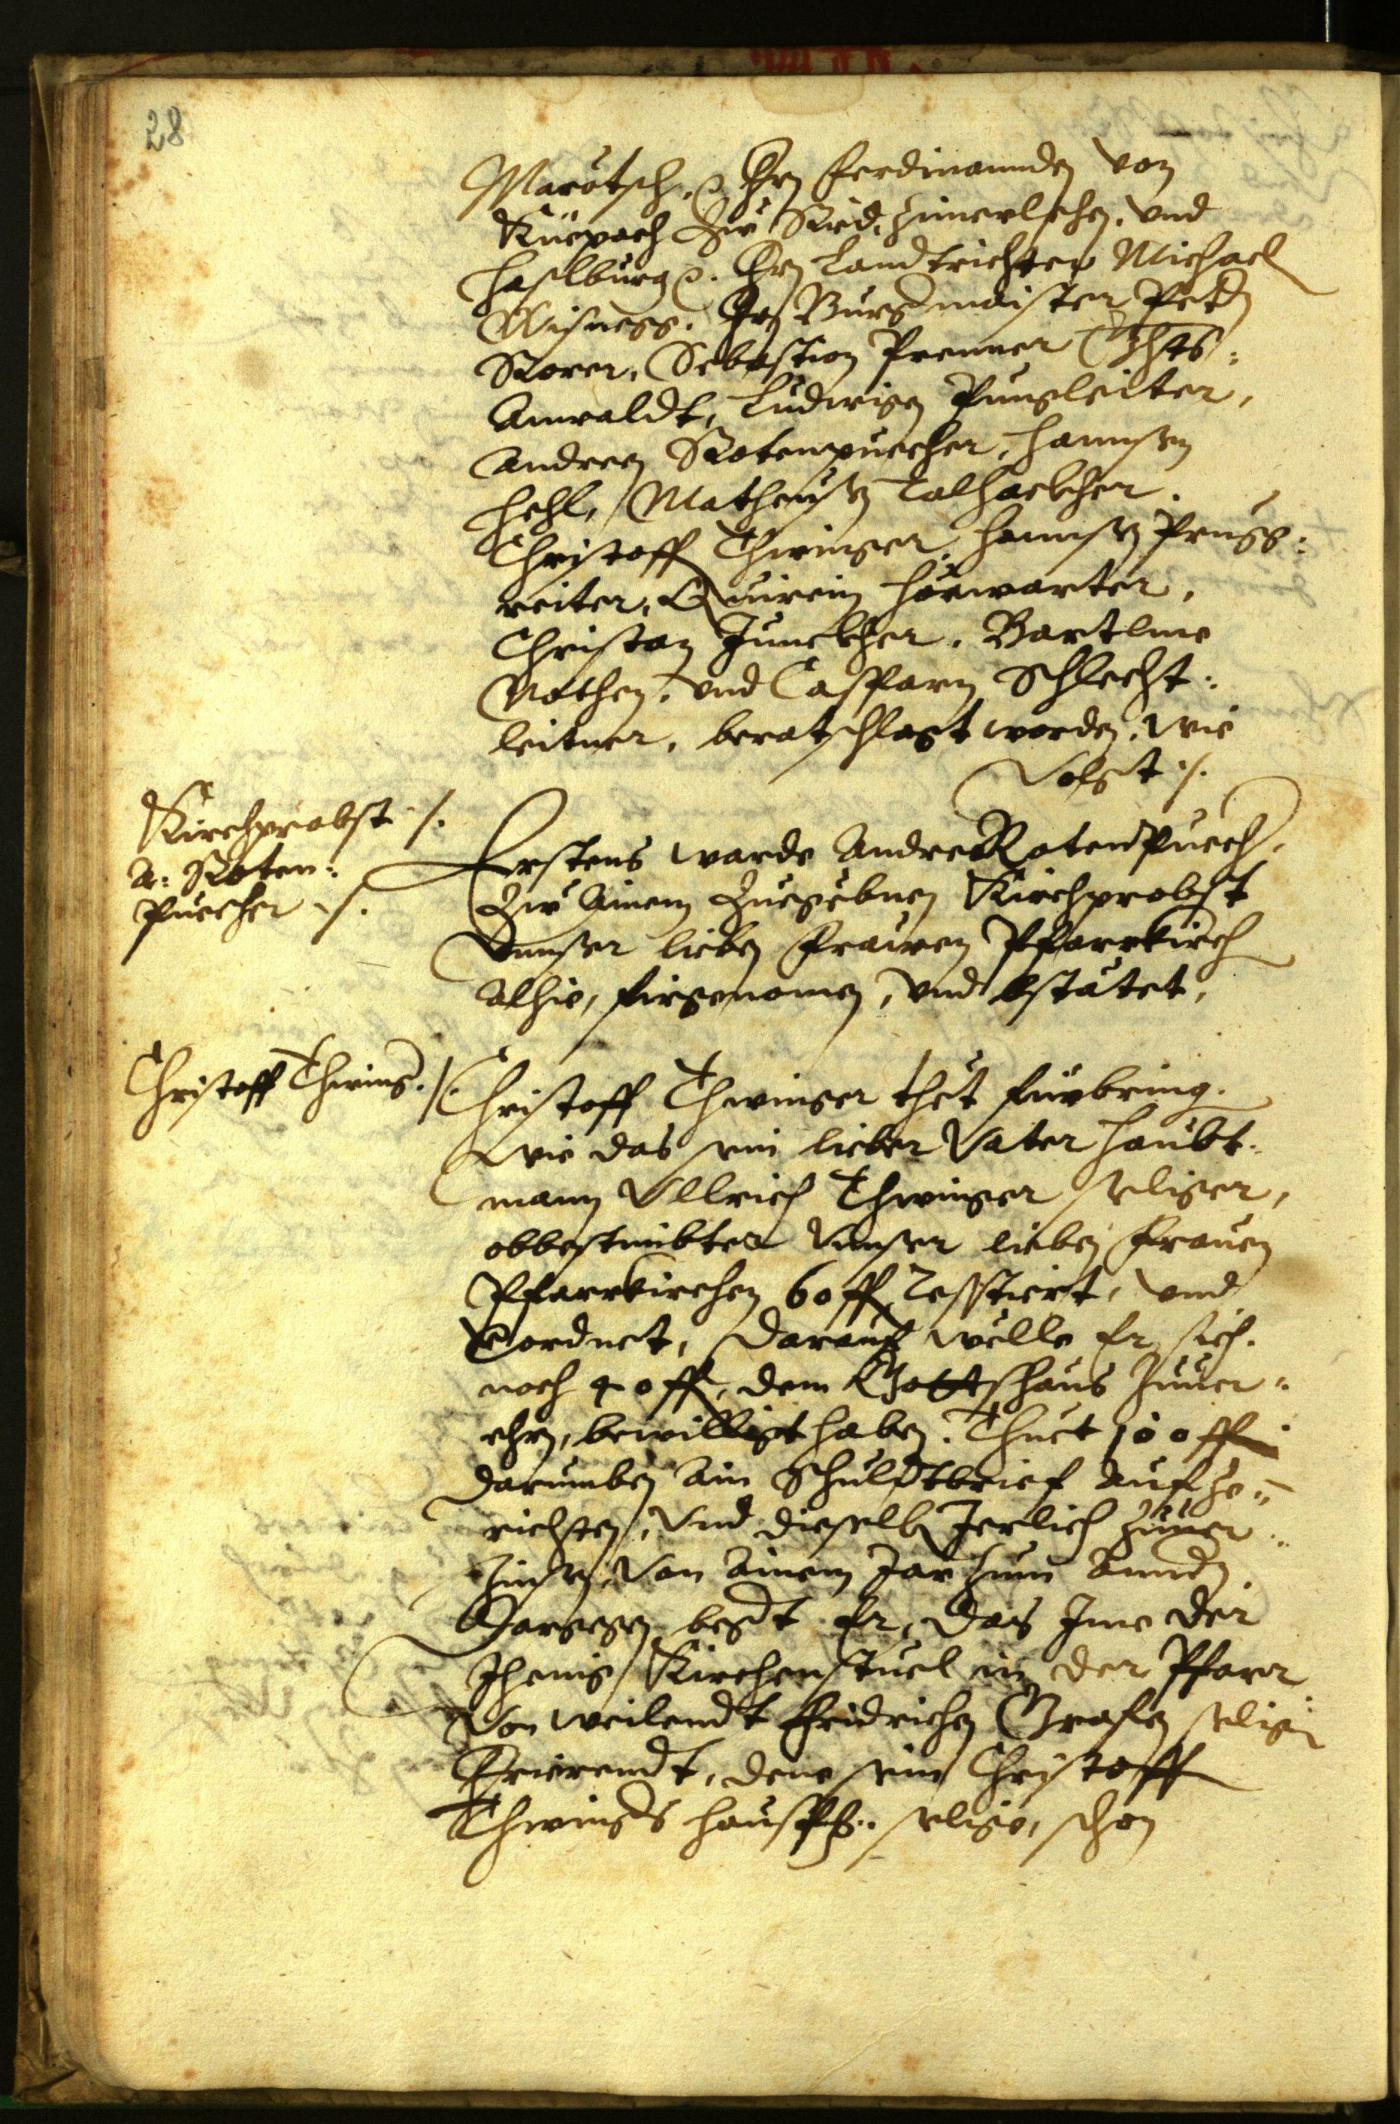 28
Marötsch. Hrn Ferdinannden von
Küepach zu Ried, Zimerlehen. und
Haslburg. Hrn Landtrichter Michael
Misness. Hrn Burgmaister Petern
Rorer, Sebastian Prenner
Anwaldt, Ludwigen Pungleiter,
Andreen Rotenpuecher, Hannsen
Hehl, Matheusen Talhackher.
Christoff Thwinger, Hannsen Prugg:
reiter, Quirein Hörwarter,
Christan Junckher. Bartlme
Nothen, und Casparn Schlecht:
leitner, beratschlagt worden, wie
Volgt ./.
Kirchprobst ./.
A: Roten:
Puecher ./.
Erstens warde Andree Rotenpuecher
Zu Ainem Zuegebnen Kirchprobst
Vnnser lieben Frawen Pfarrkirch
Alhie, firgenomen, und bstätet,
Christoff Thwing. ./.
Christoff Thwinger thet fürbring.
wie das sein lieber Vater Haubt:
mann Ullrich Thwinger seliger,
obbestimbter Vnnser lieben Frauen
Pfarrkirchen 60 fl, Testiert, und
Verordnet, darauf welle Er sich
noch 40 fl, dem Gottshaus Zuuer:
ehrn, bewilligt haben. Thuet 100 fl
darumben Ain Schuldtbrief aufze:
richten, Und dieselben Jerlich Zuuer:
Zinsen, Von Ainem Jar Zum Anndern.
Dargegen begert Er, das Ime der
Jhenig Kirchenstuel in der Pfarr
Von weilendt Fridrichen Grafen selig:
Herrerendt, dene sein Christoff
Thwingers Hausfr: selige, schon